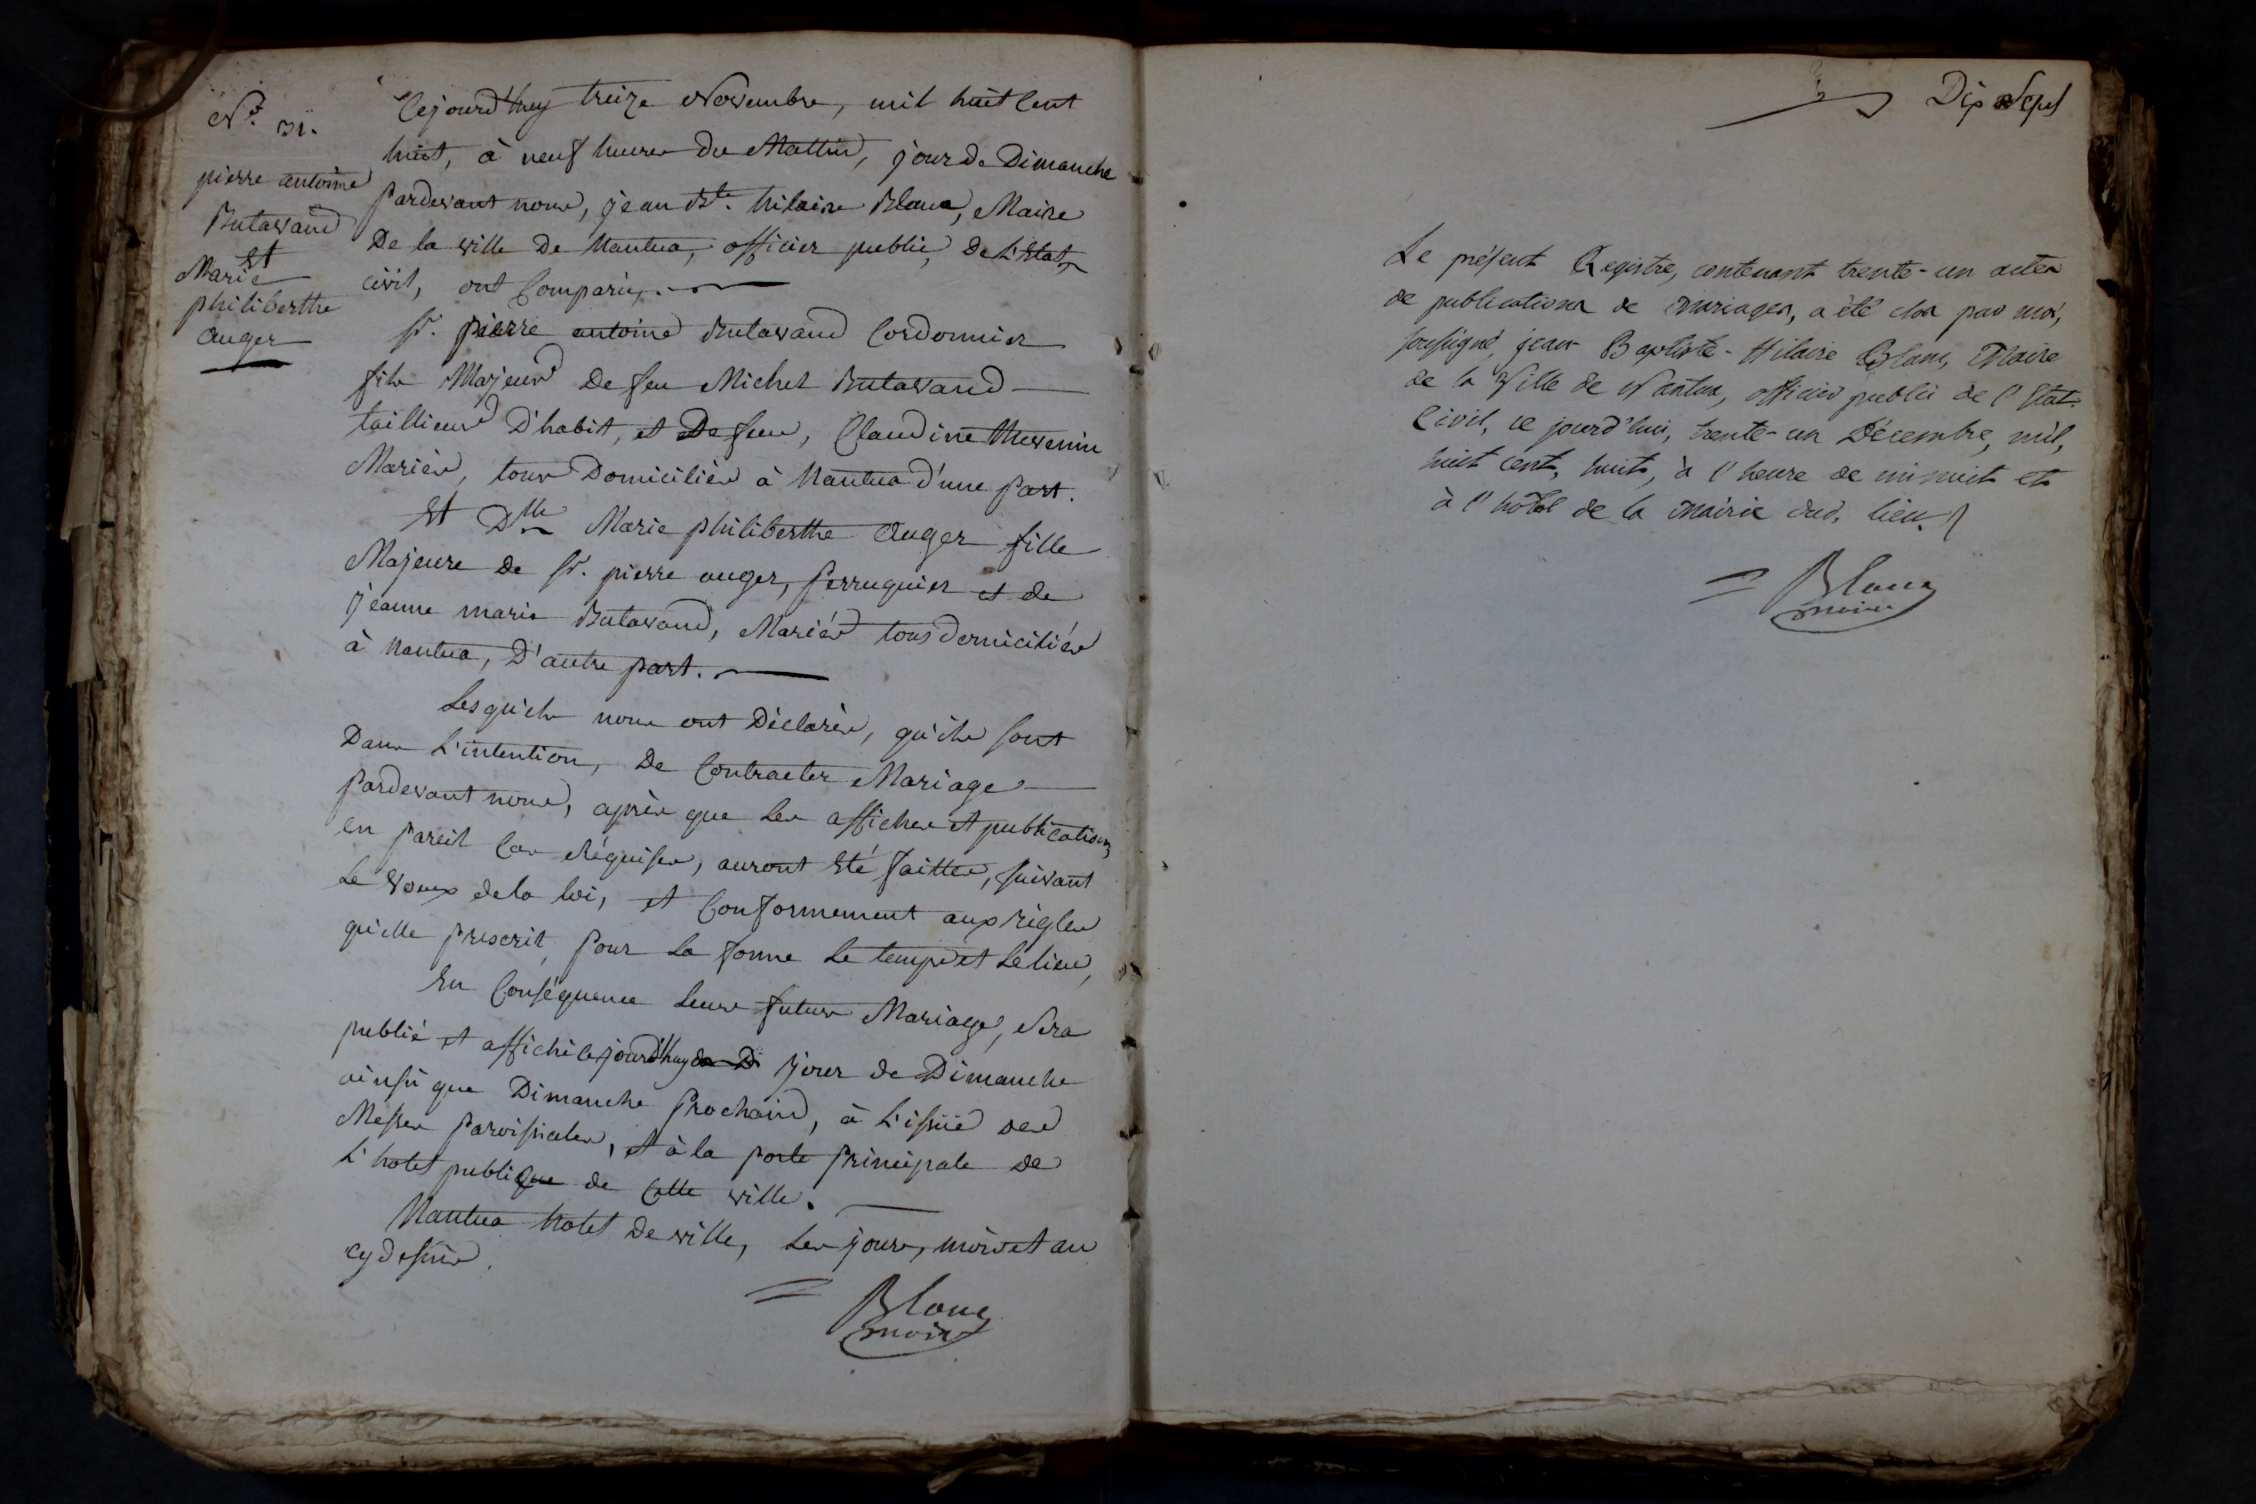 N.° 31.
pierre antoine
Butavand
Et
Marie
philiberthe
auger
Cejourd'huy treize Novembre, mil huit Cent
huit, à neuf heures du Mattin, jour de Dimanche
Pardevant nous, jean Bte. hilaire Blanc, Maire
De la ville De Nantua, officier public, De L'Etat
civil, ont Comparus.
Sr. pierre antoine Butavand Cordonnier
fils Majeur De feu Michel Butavand
taillieur D'habit, et De feue, Claudine thevenin
Mariés, tous Domiciliés à Nantua d'une part.
Et Dlle Marie philiberthe Auger fille
Majeure de Sr. pierre auger, perruquier et de
jeanne marie Butavand, Mariés tous domiciliés
à Nantua, D'autre part.
Lesquels nous ont Déclarés, qu'ils sont
Dans L'intention, De Contracter Mariage
pardevant nous, après que Les affiches et publications
en pareil Cas Réquises, auront Eté faittes, suivant
Le Voeux de la loi, et Conformement aux règles
qu'elle prescrit, pour La forme Le temps et Le lieu,
En Conséquence Leurs futurs Mariage, sera
publié et affiché Cejourd'huy jour de Dimanche
ainsi que Dimanche prochain, à L'issüe des
Messes paroissiales, et à la porte principale de
L'hotel publique de Cette ville.
Nantua hotel De ville, Les jours, mois et an
cy dessus.
Blanc
maire
Dix Sept
Le présent Registre, contenant trente-un actes
de publications de mariages, a été clos par moi,
soussigné, jean Baptiste-Hilaire Blanc, Maire
de la Ville de Nantua, officier public de l'Etat
Civil, ce jourd'hui, trente-un Décembre, mil,
huit cent, huit, à l'heure de minuit et
à l'hôtel de la mairie dud. lieu.
Blanc
maire